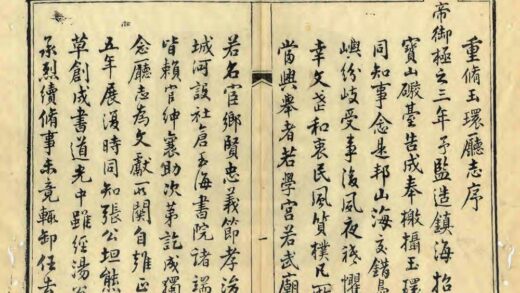 重脩玉環廳志序
帝御極之三年予監造鎮海招
寶山礮臺告成奉檄攝玉環
同知事念是邦山海交錯島
嶼紛岐受事後夙夜祗懼
幸文和衷民風質樸凡
當興舉者若學宮若武廟
若名宦鄉賢忠義節孝
城河設社倉玉海書院諸端
皆賴官紳襄助次第訖成獨
念廳志為文獻所關自雍正
五年展復時同知張公坦熊
草創成書道光中雖經湯公
承烈續脩事未竟輒卸任去